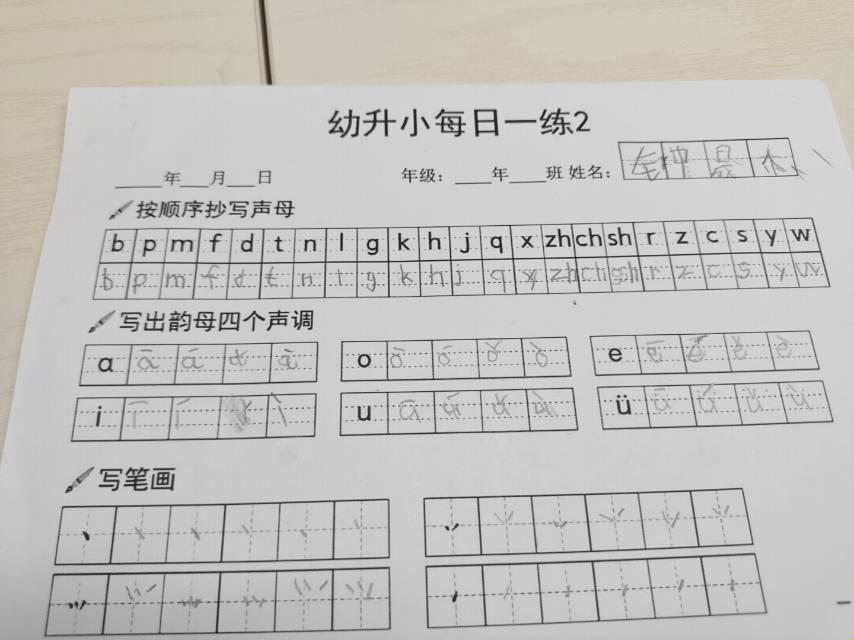 幼升小每日一练2
____年___月___日 年级：____年____班 姓名：钟晨木
按顺序抄写声母
b p m f d t n l g k h j q x zh ch sh r z c s y w
b p m f d t n l g k h j q x zh ch sh r z c s y w
写出韵母四个声调
a ā á ǎ à o ō ó ǒ ò e ē é ě è
i ī í ì u ū ú ǔ ù ü ǖ ǘ ǚ ǜ
写笔画